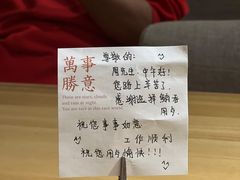 萬事
勝意
There are stars, clouds
and rain at night.
You are each in this vast world.
尊敬的:
周先生,中午好!
您路上辛苦了。
感谢选择纳吾
用夕。
祝您事事如意
工作顺利
祝您用夕愉快!!!